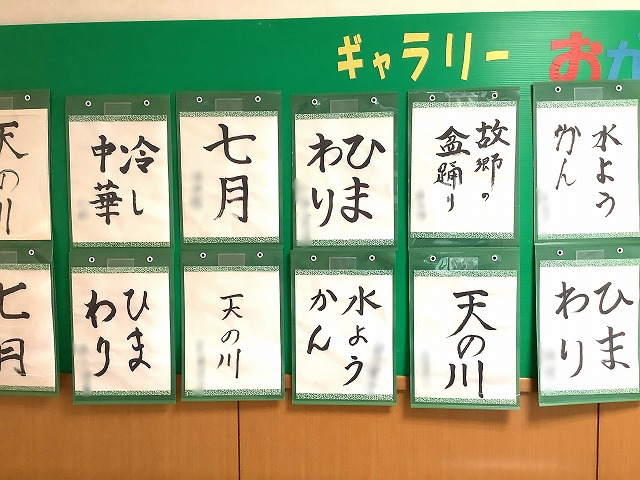 ギャラリー おか
天の川
冷し
中華
七月
ひま
わり
故郷の
盆踊り
水よう
かん
七月
ひま
わり
天の川
水よう
かん
天の川
ひま
わり